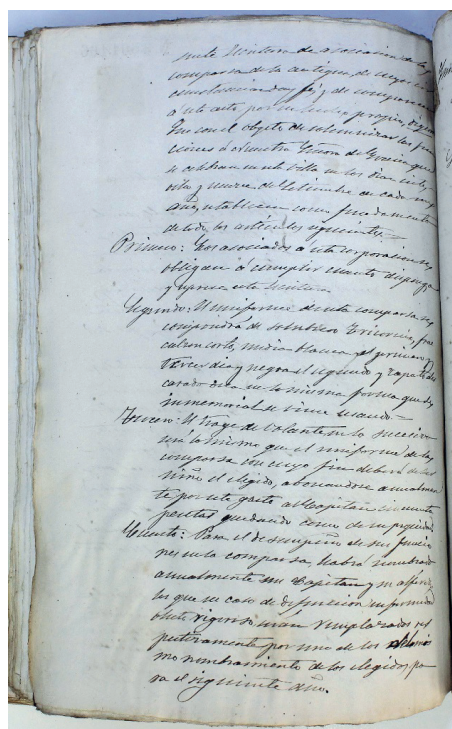 en la Escritura de asociacion de la
comparsa de la antigua, de cuyo
conocimiento doy fé y de comparecer
a este acto por su
Que con el objeto de solemnizar las fun
ciones á Nuestra Señora de Gracia que
se celebran en esta Villa en los dias siete,
ocho y nueve de Setiembre de cada
año, establecen como fundamento
de todo los artículos siguientes.=
Primero: Los asociados a esta corporacion se
obligan á cumplir cuanto disponga
y esprese esta Escritura
Segundo: El uniforme de esta comparsa se
compondrá de sombrero tricornio, frac
calzon corto, media blanca el primero y
tercer dia y negra el segundo y zapato
en la misma forma que desde
inmemorial se viene usando.=
Tercero: El trage de Volante en lo succesivo
será lo mismo que el uniforme de la
comparsa
niño el elegido, abonandose anualmen
te por este gasto al Capitan cincuenta
pesetas quedando como de su propiedad
Cuarto: Para el desempeño de sus funcio
nes en la comparsa, habrá nombrado
anualmente un Capitan y un alferez,
los que en caso de defuncion, enfermedad
ó luto rigoroso, seran remplazados res
petivamente por uno de los
mo nombramiento de los elegidos pa
ra el siguiente año.